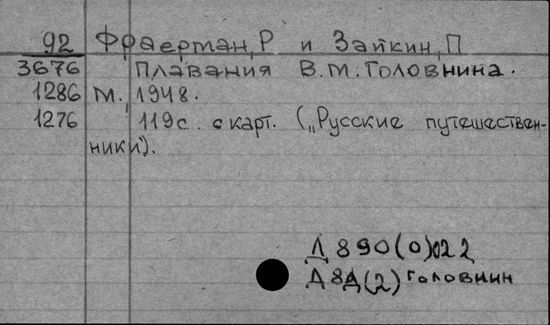 92 Фраерман, Р и Зайкин, П
3676 Плавания В.М. Головнина.
1286 М., 1948.
1276 119с. с карт. („Русские путешествен-
ники").
Д 890(0)022
Д 8Д(2) Головнин